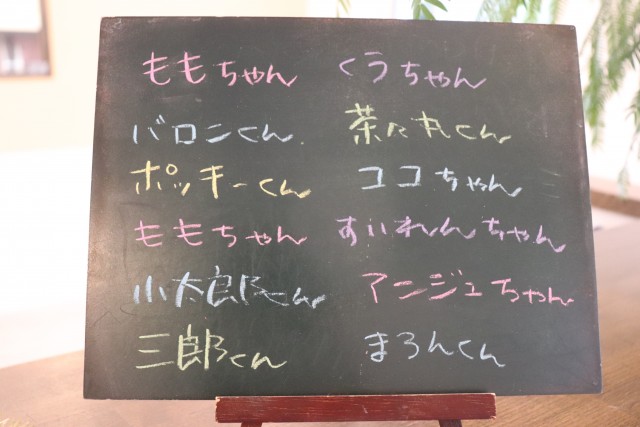 ももちゃん くうちゃん
バロンくん 茶々丸くん
ポッキーくん ココちゃん
ももちゃん すいれんちゃん
小太郎くん アンジュちゃん
三郎くん まろんくん